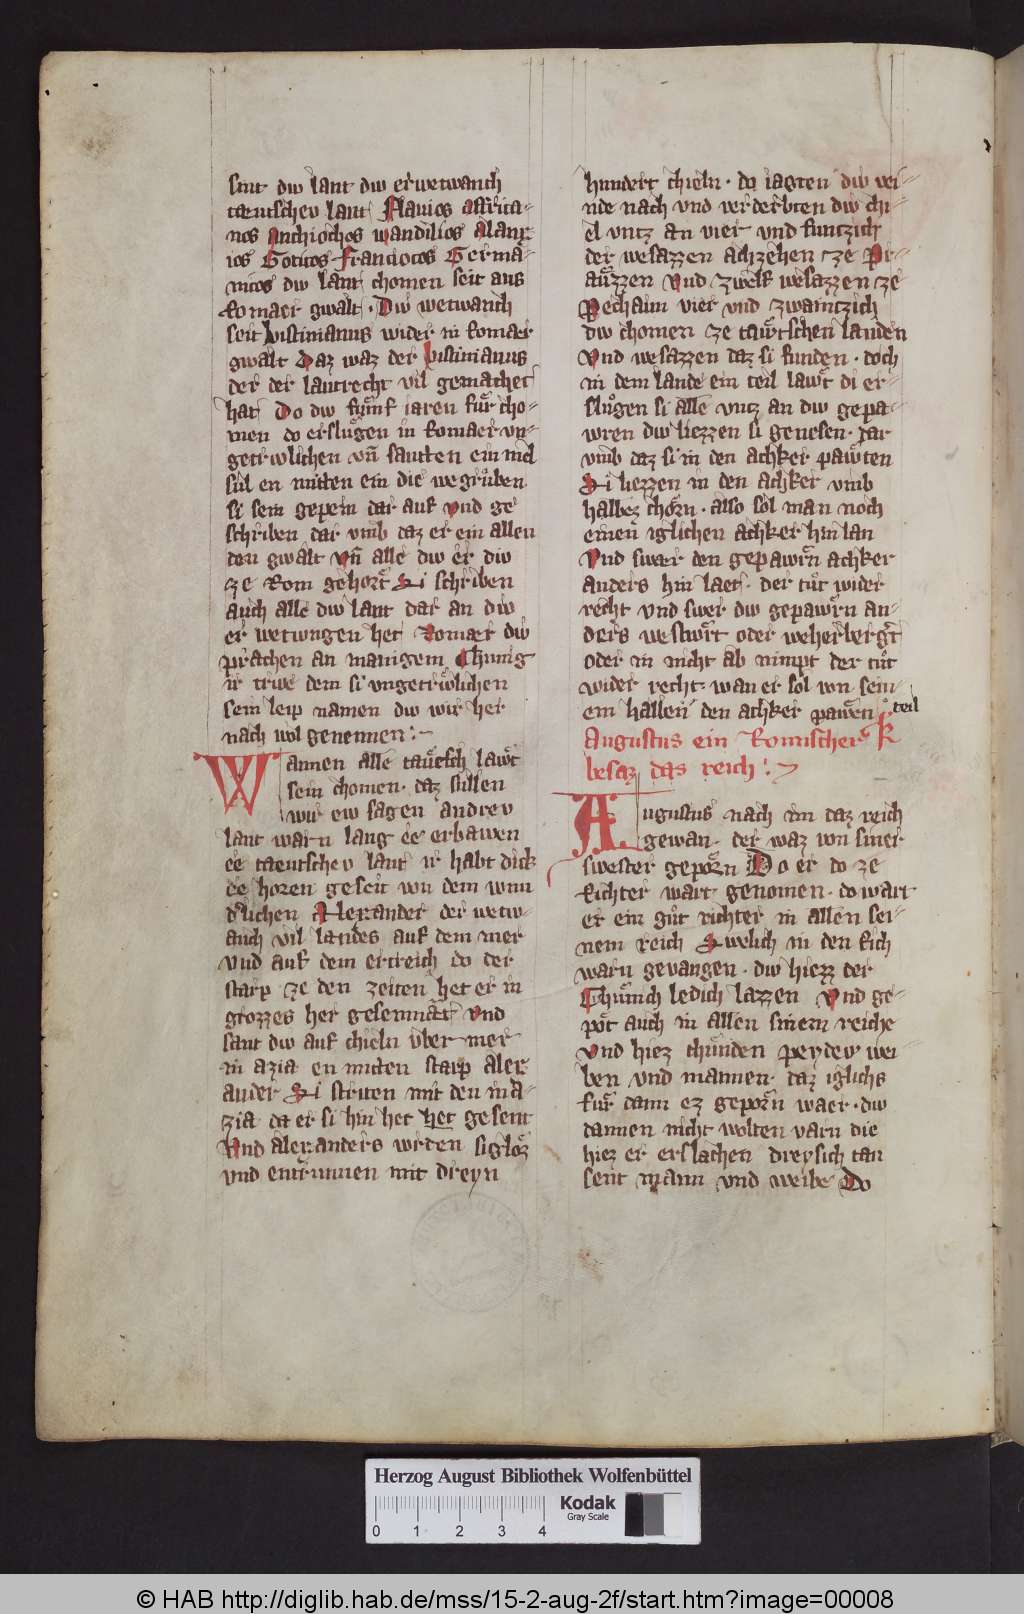 sint diw lant diw er wetwanch
taeutschev lant Flauios affrica-
nos Anthiochos wandilios alany
ios Goticos Franciocos Germa-
nicos diw lant chomen seit aus
Romaer gwalt. Diw wetwanch
seit Justinianus wider in Romaer
gwalt Daz waz der Justinianus
der der lantrecht vil gemachet
hat Do diw fuͤmf iaren fuͤr cho-
men do ersluͤgen in Romaer vn-
getriwlichen vn̄ santten ein
sůl en mitten ein die wegrůben
si sein gepein dar auf vnd ge
schriben dar vmb daz er ein allen
den gwalt vn̄ alle diw er diw
ze Rom gehort Si schriben
auch alle diw lant dar an diw
er wetwngen het Romaer diw
prachen an manigem Chunig
ir triwe dem si vngetriwlichen
sein leip namen diw wir her
nach wol genennen
Wannen alle taͤutsch laͤwt
sein chomen. daz sullen
wir ew sagen andrev
lant warn lang ee erbawen
ee taeutschev lant ir habt dick
horen geseit von dem wnn
dlichen Alexander der wetw-
anch vil landes auf dem mer
vnd auf dem ertreich do der
starp ze den zeiten het er in
grozzes her gesemnͤt vnd
sant diw auf chieln vber mer
in azia en mitten starp alex
ander Si striten mit den in a-
zia da er si hin het het gesent
Vnd alexanders wrten siglͦz
vnd entrunnen mit dreyn
hundert chieln. do iagten diw vei-
nde nach vnd verderbten diw chi-
el vntz an vier vnd funtzich
der wesazzen achzehen ze Pr-
aͤuzzen Vnd zwelf wesazzen ze
Pechaim vier vnd zwaintzich
diw chomen ze taͤwtschen landen
Vnd wesazzen daz si funden. doch
in dem lande ein teil laͤwt di er-
sluͤgen si alle vntz an diw gepa-
wren diw liezzen si genesen. dar
vmb daz si in den achker pawͤten
Si liezzen in den achker vmb
halbez choͤrn. also sol man noch
einen iglichen achker hin lan
Vnd swer den gepawrn achker
anders hin laet. der tuͦt wider
recht vnd swer diw gepawrn an-
ders westwͤrt oder weherbergt
oder in nicht ab nimpt der tuͦt
wider recht. wan er sol von sein-
em hallen den achker pawen teil
Augustus ein Romischer k
besaz das reich
Augustus nach im daz reich
gewan. der waz von siner
swester geporn Do er do ze
Richter wart genomen. do wart
er ein guͦt richter in allen sei-
nem reich Swelich in den Rich
warn gevangen. diw hiezz der
Chuͤnich ledich lazzen Vnd ge-
pot auch in allen sinem reiche
vnd hiez chuͤnden peydew wei
ben vnd mannen. daz iglichs
fuͤr dann ez geporn waer. diw
dannen nicht wolten varn die
hiez er erslachen dreysich tau
sent mann vnd weibe Do
Herzog August Bibliothek Wolfenbüttel
Kodak
Gray Scale
0 1 2 3 4
© HAB http://diglib.hab.de/mss/15-2-aug-2f/start.htm?image=00008